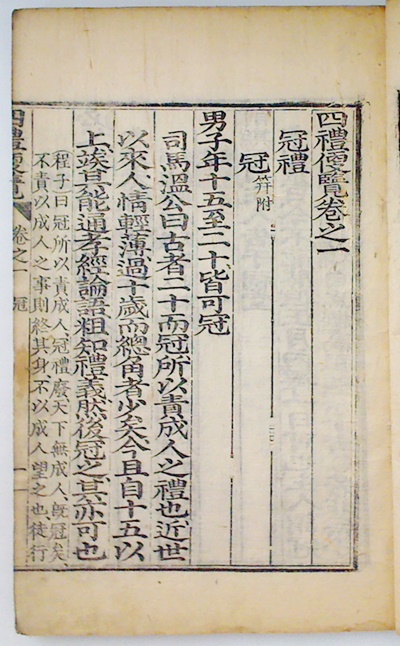 四禮便覽卷之一
冠禮
冠 笄附
男子年十五至二十皆可冠
司馬溫公曰古者二十而冠所以責成人之禮也近世
以來人情輕薄過十歲而總角者少矣今且自十五以
上俟其能通孝經論語粗知禮義然後冠之其亦可也
程子曰冠所以責成人冠禮廢天下無成人旣冠矣
不責以成人之事則終其身不以成人望之也徒行
四禮便覽 卷之一 冠 一